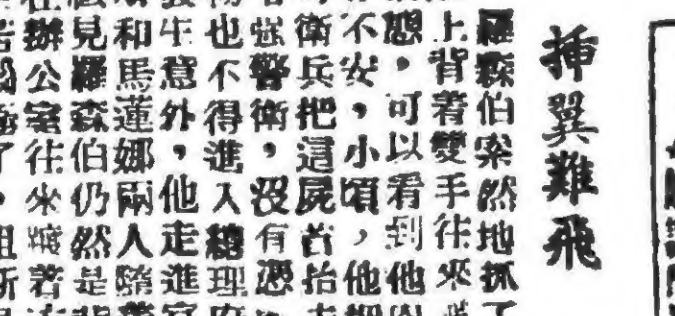 挿翼難飛
羅森伯索然地抓了
上背着雙手往來
，可以看到他
不安，小頃，他把
衛兵把這屍首抬
強警衛，沒有憑
也不得進入總理府
生意外，他走進
和馬蓮娜兩人隨
見羅森伯仍然是
辦公室往來踱着
了，